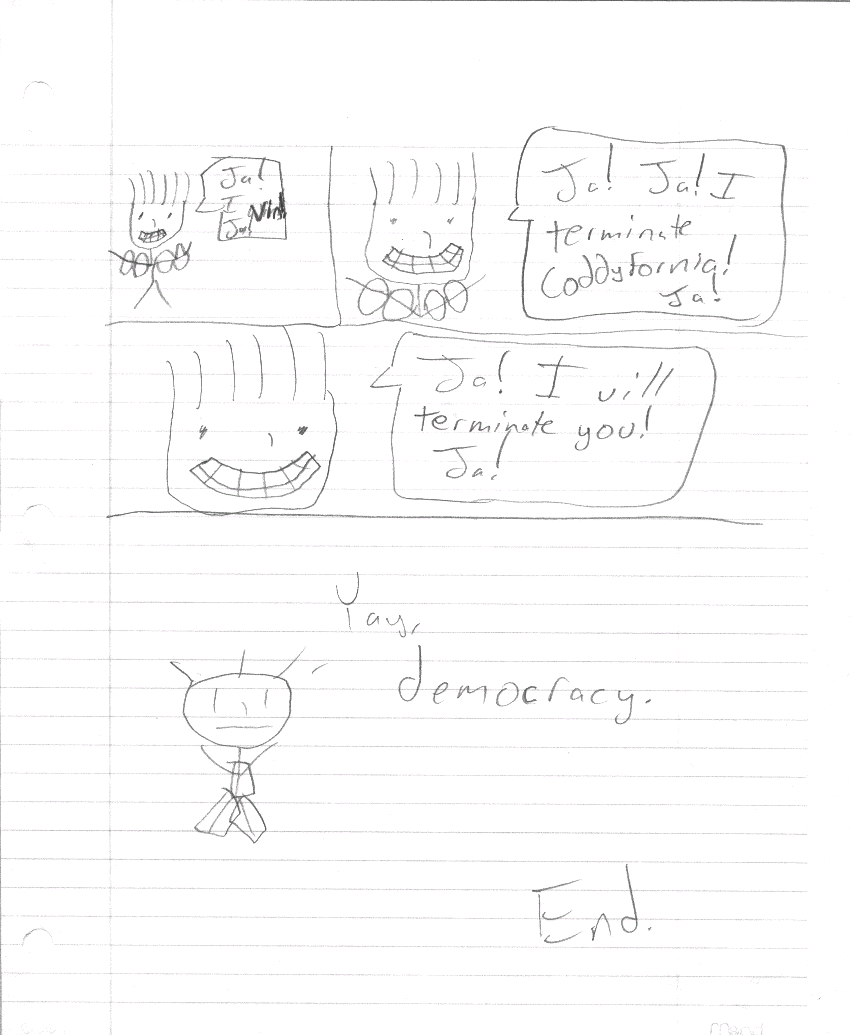 Ja!
I Vin!
Ja!
Ja! Ja! I
terminate
Coddyfornia!
Ja!
Ja! I vill
terminate you!
Ja!
Yay,
democracy.
End.